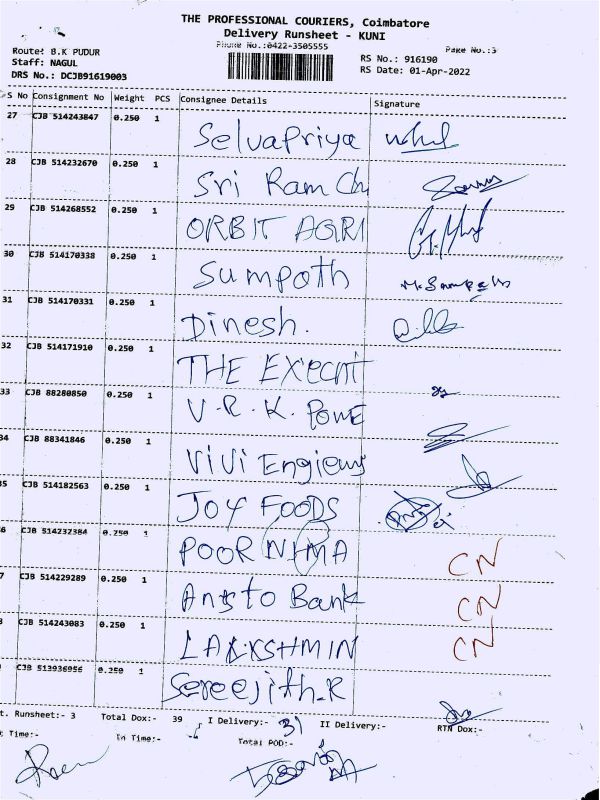 THE PROFESSIONAL COURIERS, Coimbatore
Delivery Runsheet - KUNI
Phone No.:0422-3505555
Page No.:3
Route: B.K PUDUR
Staff: NAGUL
DRS No.: DCJB91619003
RS No.: 916190
RS Date: 01-Apr-2022
S No Consignment No Weight PCS Consignee Details Signature
27 CJB 514243847 0.250 1 Selvapriya
28 CJB 514232670 0.250 1 Sri Ram
29 CJB 514268552 0.250 1 ORBIT AGRI
30 CJB 514170338 0.250 1 Sumpoth
31 CJB 514170331 0.250 1 Dinesh.
32 CJB 514171910 0.250 1 THE
33 CJB 88280850 0.250 1 V.R.K. POWE
34 CJB 88341846 0.250 1 ViVi
35 CJB 514182563 0.250 1 JOY FOODS
6 CJB 514232384 0.250 1 POORNIMA CN
7 CJB 514229289 0.250 1 Bank CN
8 CJB 514243083 0.250 1 LAKSHMIN CN
CJB 513936956 0.250 1 Sereejith.R
t. Runsheet:- 3 Total Dox:- 39 I Delivery:- 31 II Delivery:- RTN Dox:-
t Time:- In Time:- Total POD:-